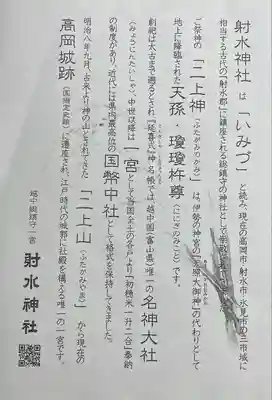 射水神社は「いみづ」と読み、現在の高岡市・射水市・氷見市の三市域に
相当する古代の「射水郡」に鎮座される総鎮守の神社として
ご祭神の「二上神（ふたがみのかみ）」は、伊勢の神宮の「天照大御神」の代わりとして
地上に降臨された天孫・瓊瓊杵尊（ににぎのみこと）です。
創祀は太古まで遡るとされ『延喜式』神名帳では、越中国（富山県）唯一の名神大社
（みょうじんたいしゃ）、中世以降は一宮として当国全土の各戸より「初穂米一升二合」奉納
の制度があり、近代には県内最高位の国幣中社として格式を保持してきました。
明治八年九月、古来より神の山とされてきた「二上山（ふたがみやま）」から現在の
高岡城跡（国指定史跡）に遷座され、江戸時代の城郭に社殿を構える唯一の一宮です。
越中総鎮守一宮
射水神社